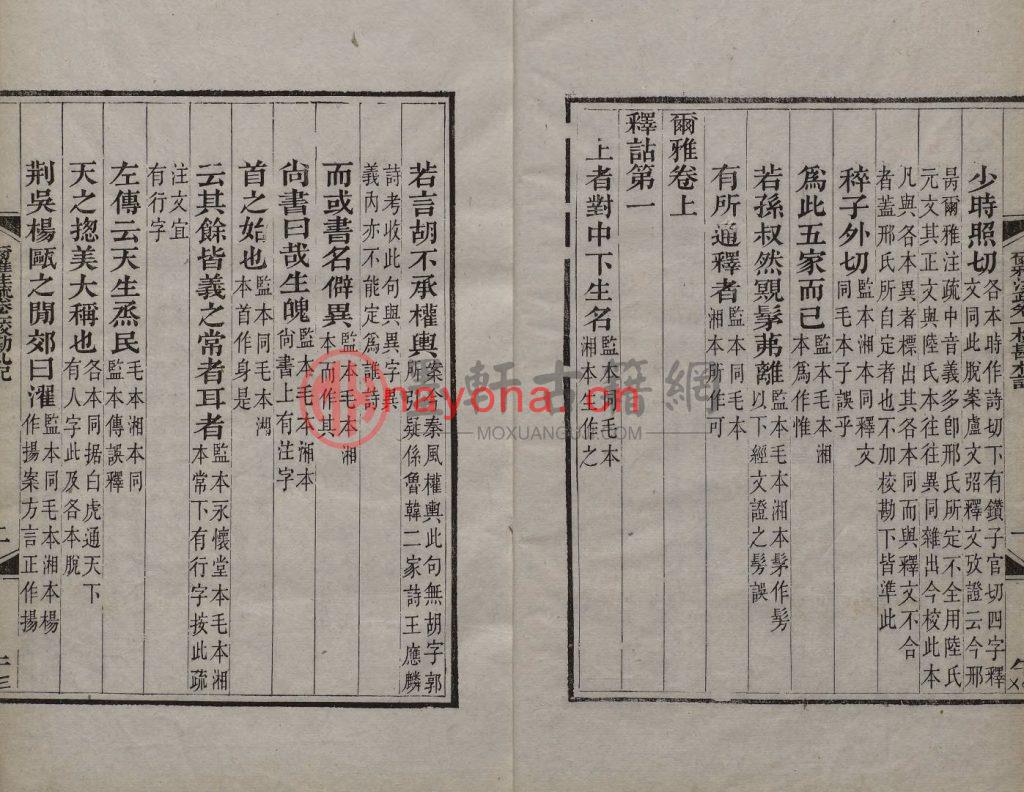 少時照切各本時作詩切下有鑽子官切四字釋文同此脫案盧文弨釋文攷證云今邢
昺爾雅注疏中音義多卽邢氏所定不全用陸氏元文其正文與陸氏本往往異同雜出今校此本
凡與各本異者標出其各本同而與釋文不合者蓋邢氏所自定者也不加核勘下皆準此
稡子外切監本同毛本湘本子誤乎
爲此五家而已監本毛本湘本爲作惟
若孫叔然覭髳茀離以下經文證之髣誤監本毛本湘本髳作髣
有所通釋者監本同毛本湘本所作可
爾雅卷上
釋詁第一
上者對中下生名監本同毛本湘本生作之
若言胡不承權輿案今秦風權輿此句無胡字郭所引疑係魯韓二家詩王應麟
詩考收此句與異字異義內亦不能定爲誰詩
而或書名僻異監本毛本湘本而作其
尙書曰哉生魄監本毛本湘本尙書上有注字
首之始也監本同毛本湘本首作身是
云其餘皆義之常者耳者監本永懷堂本毛本湘本常下有行字按此疏
注文宜有行字
左傳云天生烝民毛本湘本同監本傳誤釋
天之揔美大稱也各本同据白虎通天下有人字此及各本脫
荆吳楊甌之閒郊曰濯監本同毛本湘本楊作揚案方言正作揚
二
墨軒古籍網
MOXUANGUJI.COM
nayona.cn